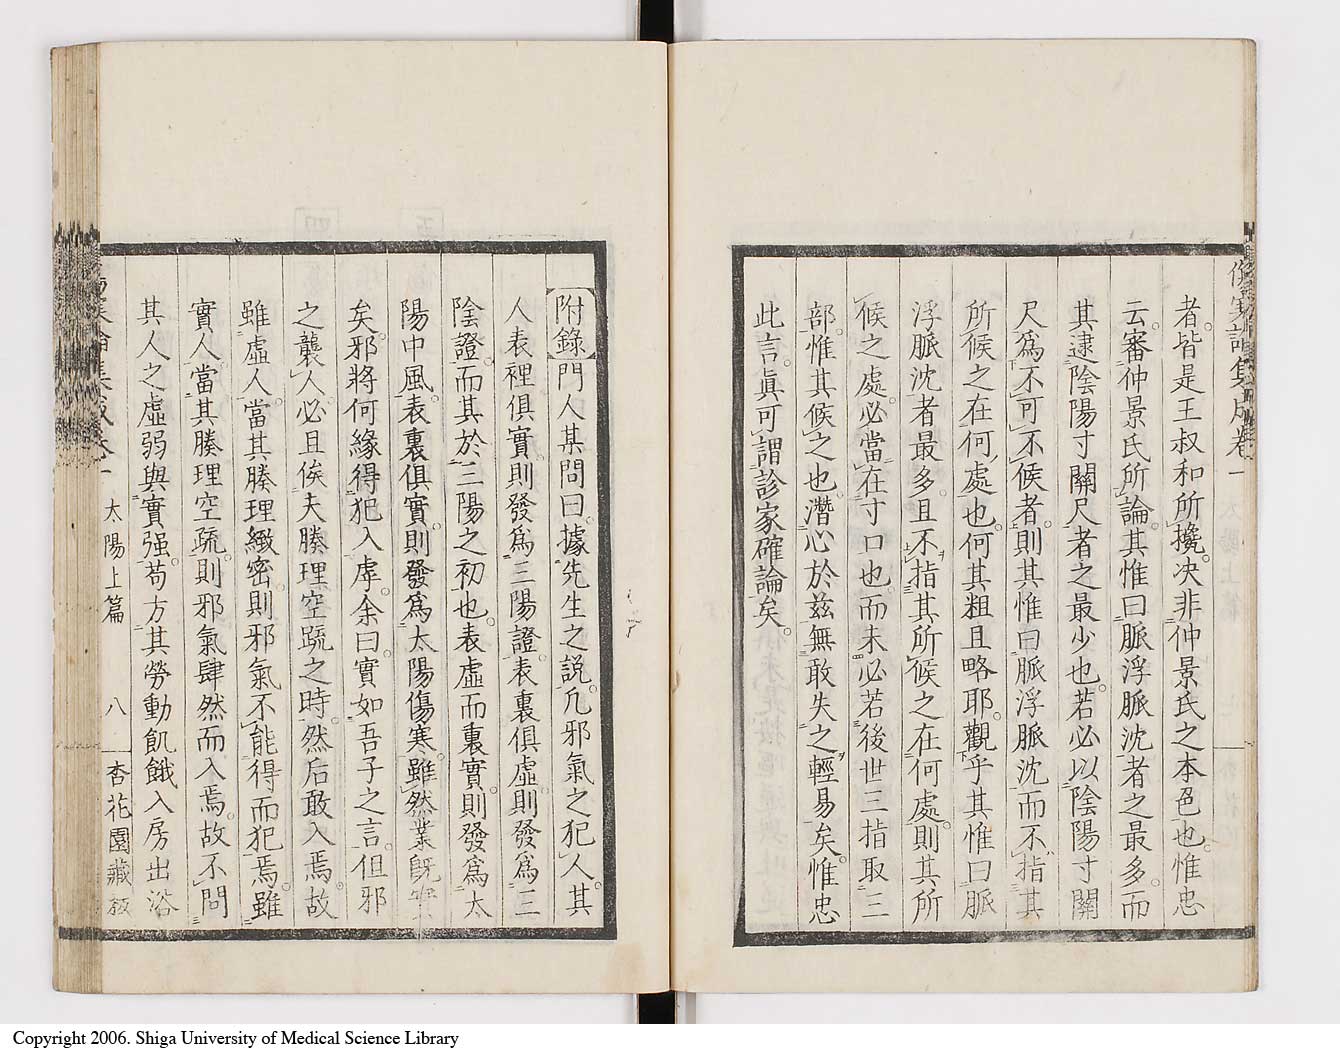 傷寒論集成卷一
者。皆是王叔和所攙。決非仲景氏之本色也。惟忠
云。審仲景氏所論。其惟曰脈浮脈沈者之最多。而
其逮陰陽寸關尺者之最少也。若必以陰陽寸關
尺爲不可不候者。則其惟曰脈浮脈沈而不指其
所候之在何處也。何其粗且略耶。觀乎其惟曰脈
浮脈沈者最多。且不指其所候之在何處。則其所
候之處。必當在寸口也。而未必若後世三指取三
部。惟其候之也。潛心於茲無敢失之輕易矣。惟忠
此言。眞可謂診家確論矣。
附錄 門人某問曰。據先生之說。凡邪氣之犯人。其
人表裡俱實。則發爲三陽證。表裏俱虛。則發爲三
陰證。而其於三陽之初也。表虛而裏實。則發爲太
陽中風。表裏俱實。則發爲太陽傷寒。雖然業既實
矣。邪將何緣得犯入虖。余曰。實如吾子之言。但邪
之襲人。必且俟夫腠理空疏之時。然后敢入焉。故
雖虛人。當其腠理緻密。則邪氣不能得而犯焉。雖
實人。當其腠理空疏。則邪氣肆然而入焉。故不問
其人之虛弱與實强。苟方其勞動飢餓入房出浴
傷寒論集成卷一 太陽上篇 八 杏花園藏板
Copyright 2006. Shiga University of Medical Science Library